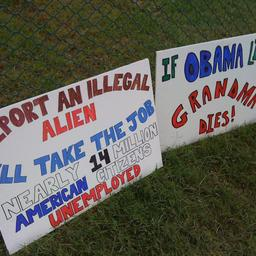 PORT AN ILLEGAL
ALIEN
LL TAKE THE JOB
NEARLY 14 MILLION
AMERICAN CITIZENS
UNEMPLOYED
IF OBAMA L
GRANDMA
DIES!